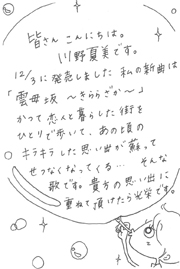 皆さん こんにちは。
川野夏美です。
12/3に発売しました 私の新曲は
「雲母坂 ～きららざか～」
かつて恋人と暮らした街を
ひとりで歩いて、あの頃の
キラキラした思い出が蘇って
せつなくなってくる… そんな
歌です。貴方の思い出に
重ねて頂けたら光栄です。